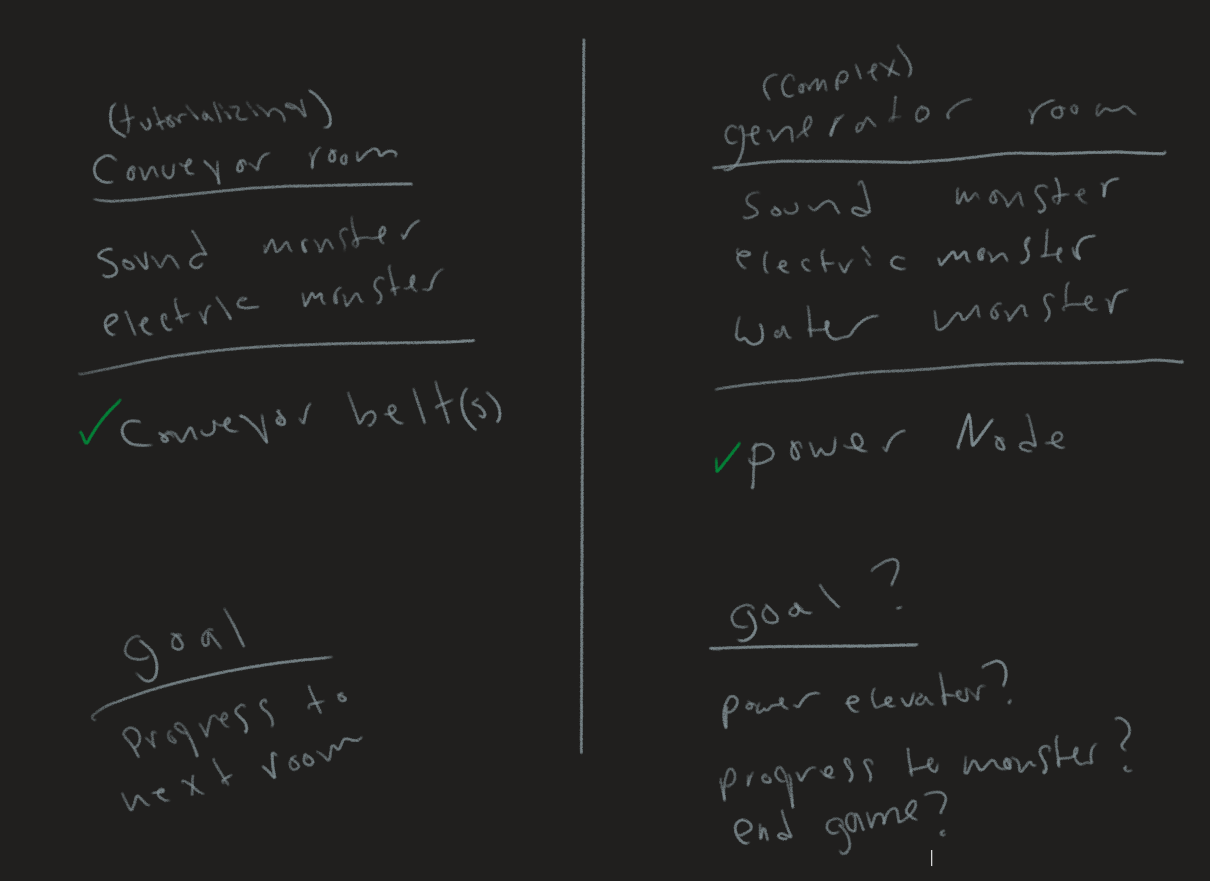 (tutorializing)
Conveyor room
Sound monster
electric monster
Conveyor belt(s)
goal
Progress to
next room
(complex)
generator room
Sound monster
electric monster
Water monster
power Node
goal?
power elevator?
progress to monster?
end game?